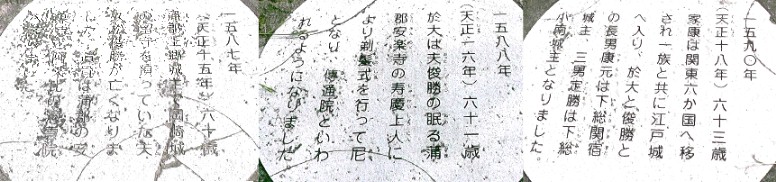 一五八七年
(天正十五年) 六十歳
蒲郡上郷城主で岡崎城
の留守を預っていた夫
久松俊勝が亡くなりま
した。遺骨は蒲郡の安
一五八八年
(天正一六年) 六十一歳
於大は夫俊勝の眠る蒲
郡安楽寺の寿慶上人に
より剃髪式を行って尼
となり 傳通院といわ
れるようになりました。
一五九〇年
(天正十八年) 六十三歳
家康は関東六か国へ移
され一族と共に江戸城
へ入り、於大と俊勝と
の長男康元は下総関宿
城主、三男定勝は下総
小南城主となりました。